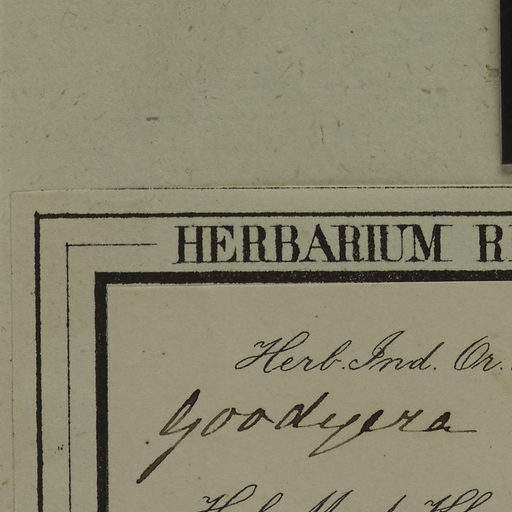 HERBARIUM
Herb. Ind. Or.
Goodyera